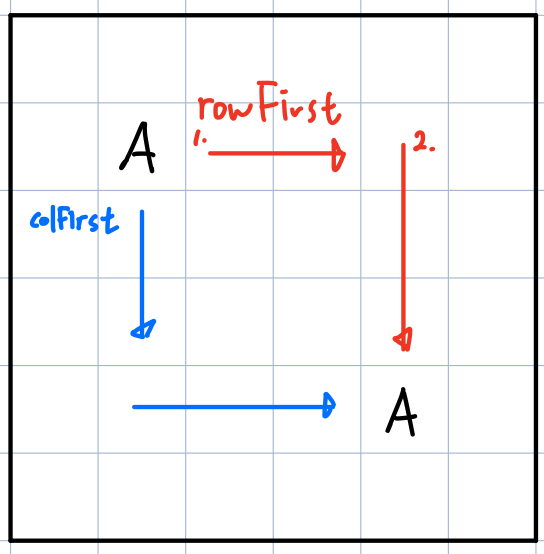 rowFirst
A
1.
2.
colFirst
A